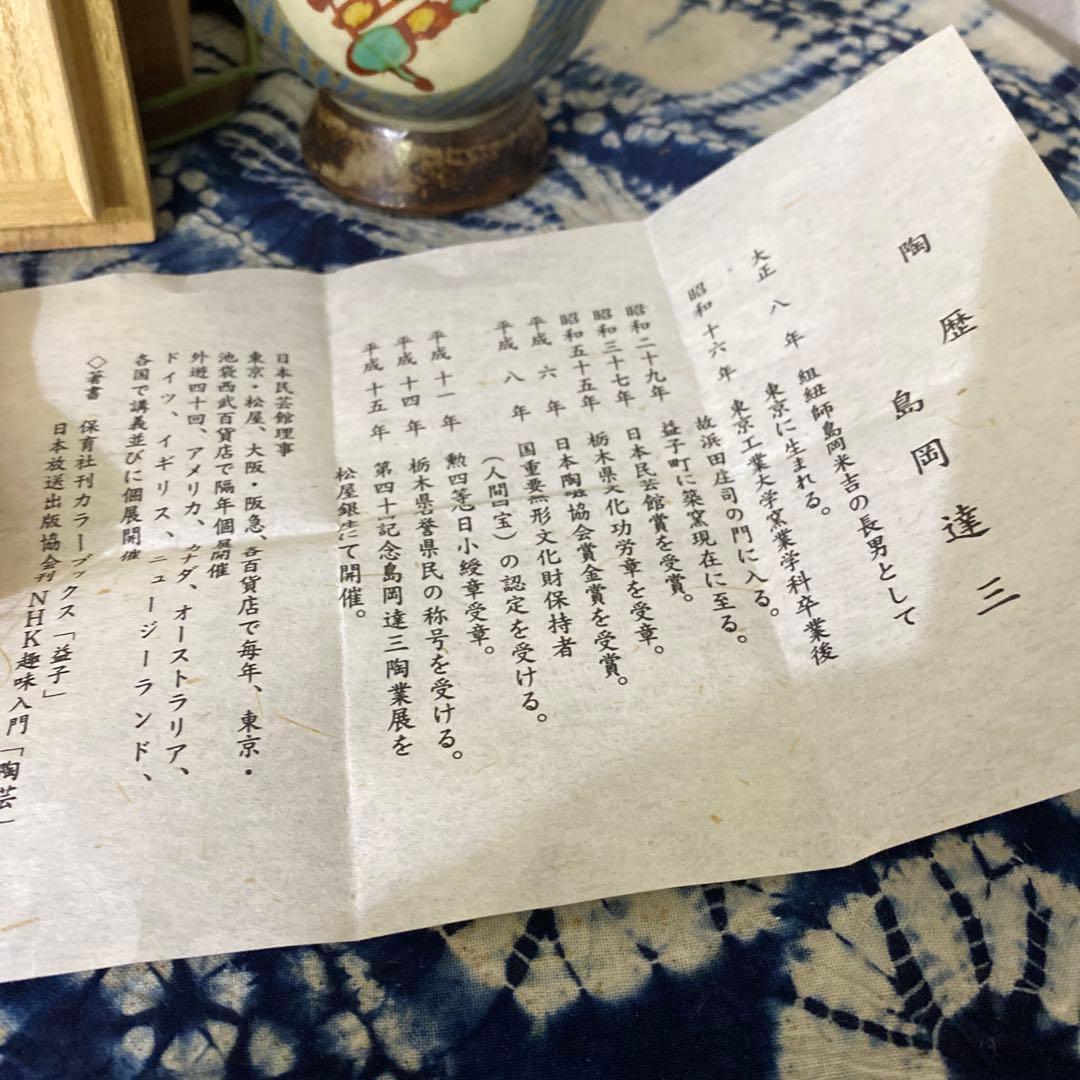 陶歴 島岡達三
大正八年 組紐師島岡米吉の長男として
東京に生まれる。
昭和十六年 東京工業大学窯業学科卒業後
故浜田庄司の門に入る。
昭和二十九年 益子町に築窯現在に至る。
昭和三十七年 日本民芸館賞を受賞。
昭和五十五年 栃木県文化功労章を受章。
平成六年 日本陶磁協会賞金賞を受賞。
平成八年 国重要無形文化財保持者
(人間国宝)の認定を受ける。
平成十一年 勲四等旭日小綬章受章。
平成十四年 栃木県誉県民の称号を受ける。
平成十五年 第四十記念島岡達三陶業展を
松屋銀座にて開催。
日本民芸館理事
東京・松屋、大阪・阪急、各百貨店で毎年、東京・
池袋西武百貨店で隔年個展開催
外遊四十回、アメリカ、カナダ、オーストラリア、
ドイツ、イギリス、ニュージーランド、
各国で講義並びに個展開催
◇著書 保育社刊カラーブックス「益子」
日本放送出版協会刊NHK趣味入門「陶芸」